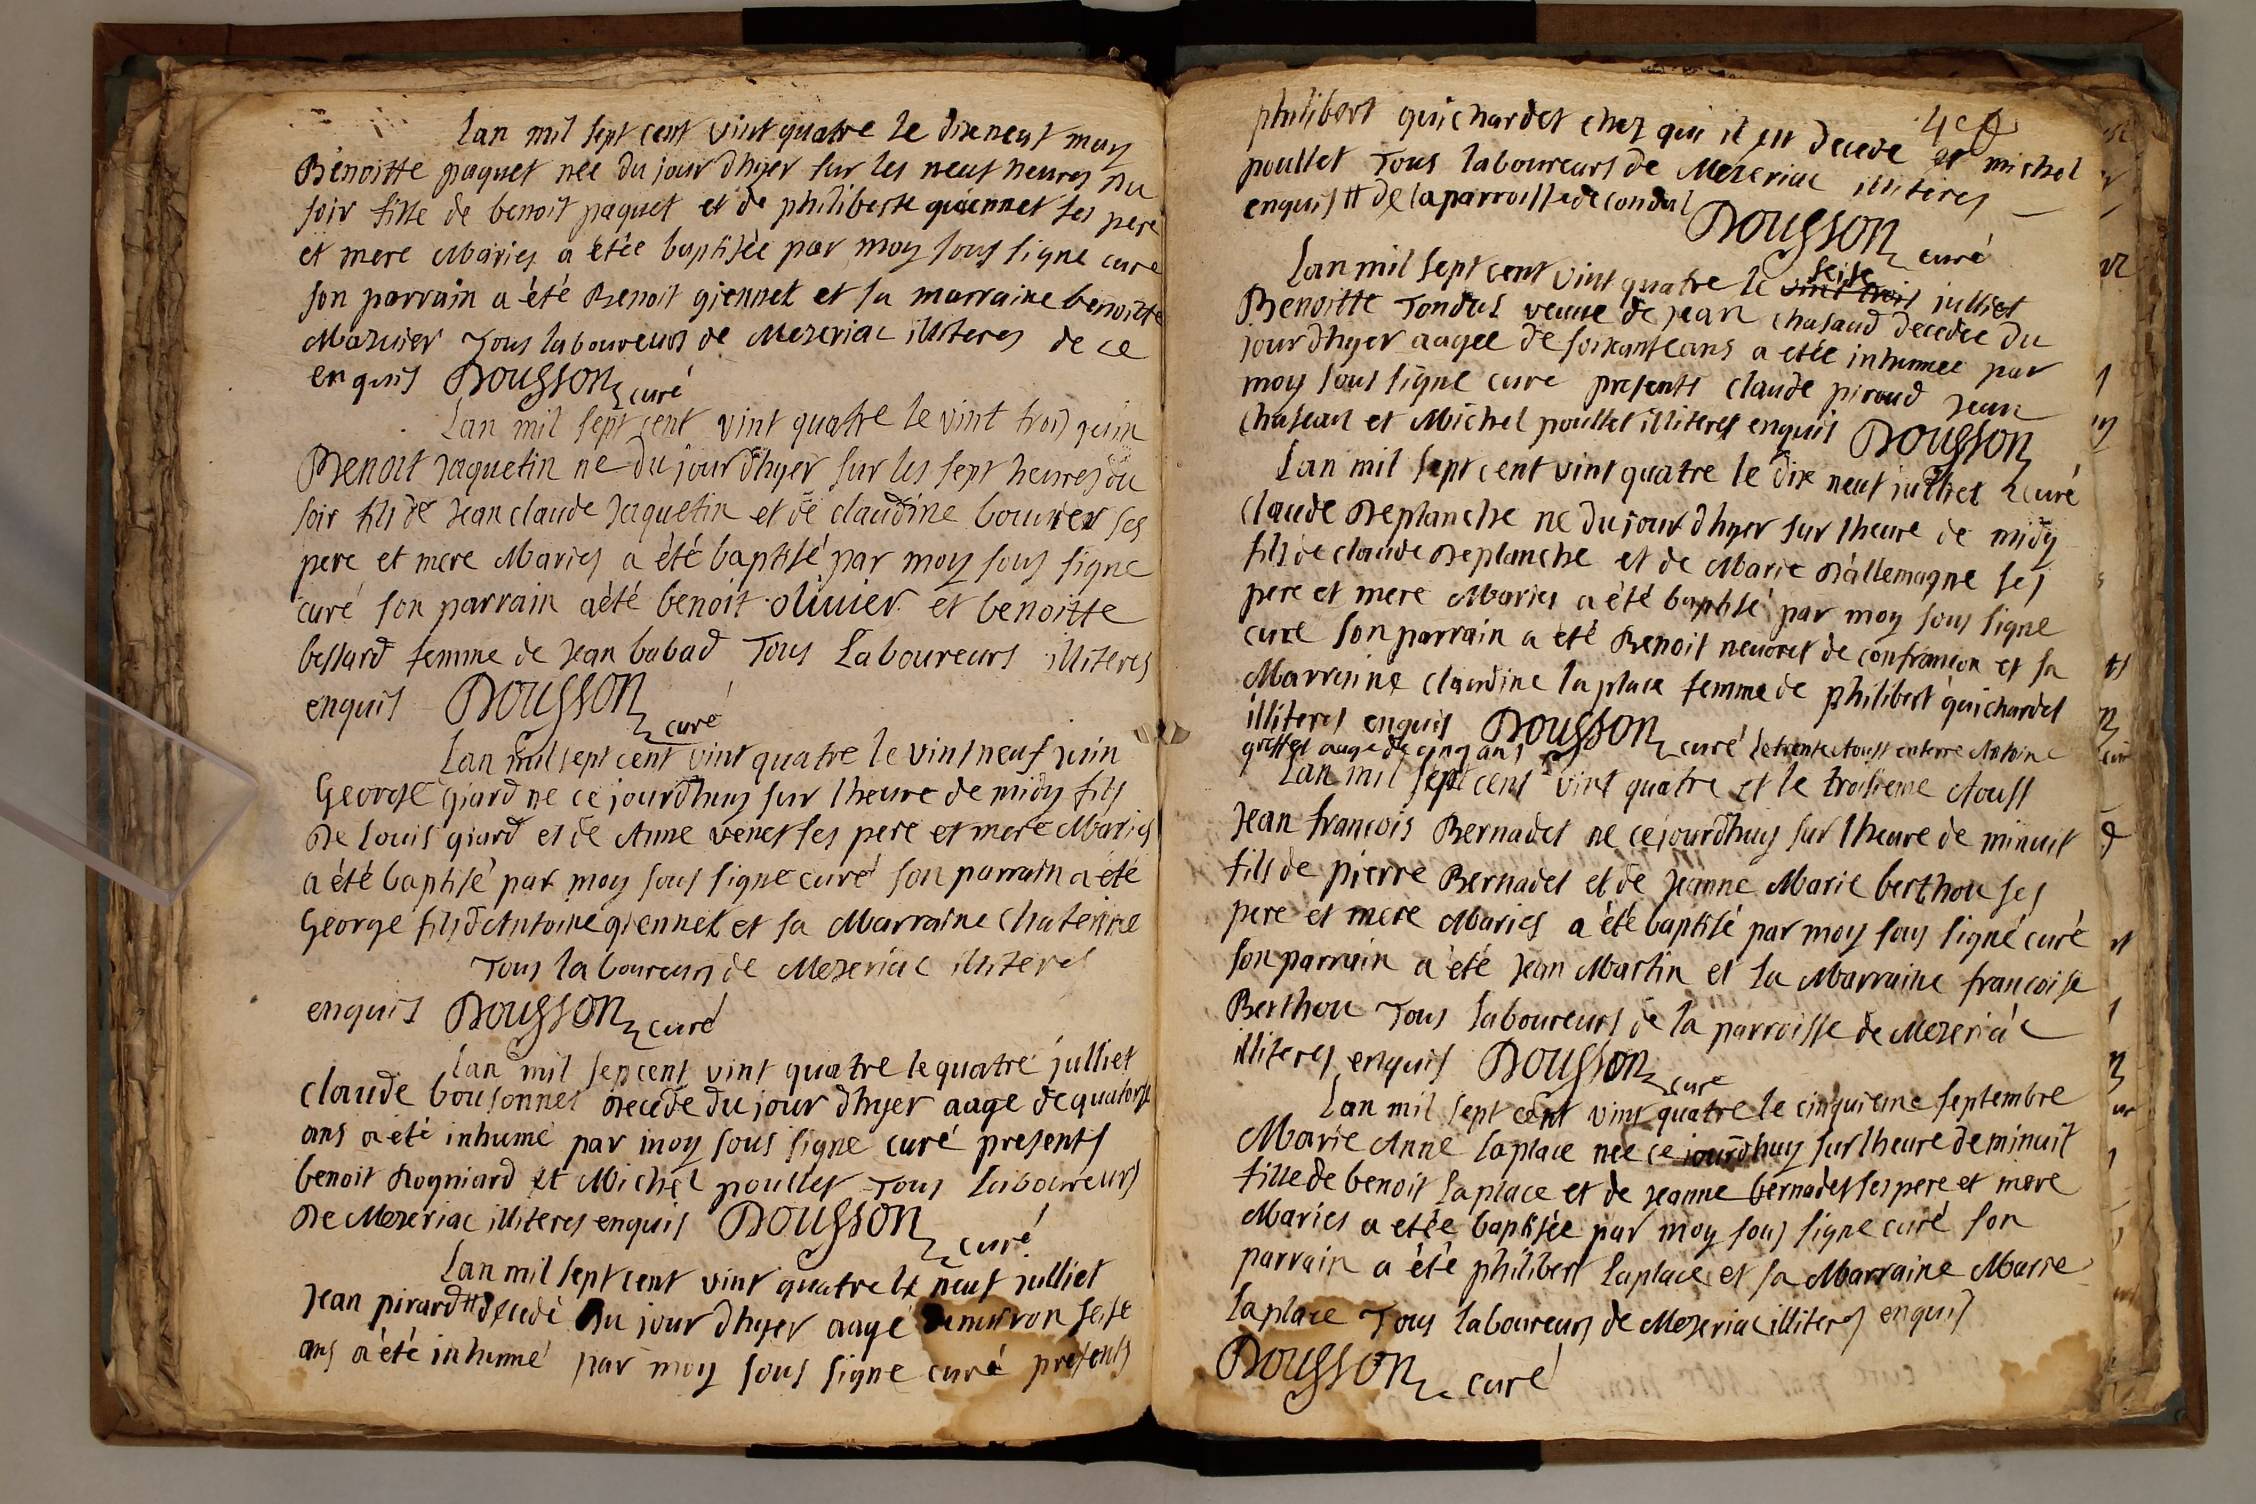 Lan mil sept cent vint quatre le dixneuf may
Benoitte paquet née du jour dhyer sur les neuf heures du
soir fille de benoit paquet et de philiberte guiennet ses pere
et mere Maries a étée baptisèe par moy sous signe curé
son parrain a été Benoit giennet et sa marraine benoitte
Mazuier Tous laboureurs de Mezeriac illiteres de ce
enquis Dousson curé
Lan mil sept cent vint quatre le vint trois juin
Benoit Jaquetin ne du jour dhyer sur les sept heures du
soir fils de Jean claude Jaquetin et de claudine bouvier ses
pere et mere Maries a èté baptisé par moy sous signe
curé son parrain aèté benoit olivier et benoitte
bessard femme de Jean babad Tous Laboureurs illiteres
enquis Dousson curé
Lan mil sept cent vint quatre le vint neuf juin
George giard ne ce jourdhuy sur lheure de midy fils
De Louis giard et de Anne venet ses pere et mere Maries
a été baptisé par moy sous signe curé son parrain a été
George fils dAntoine giennet et sa Marraine Chaterine
Tous laboureurs de Mezeriac illiteres
enquis Dousson curé
Lan mil sepcent vint quatre le quatre julliet
claude bousonnet Decede du jour dhyer aage de quatorse
ans a été inhumé par moy sous signe curé presents
benoit Rogniard et Michel poullet Tous laboureurs
De Mezeriac illiteres enquis Dousson curé
Lan mil sept cent vint quatre le neuf julliet
Jean pirard # decedè Du jour dhyer aagé denviron seise
ans a été inhumé par moy sous signe curé presents
philibert guichardet chez qui il est decede et michel
poullet Tous laboureurs de Mezeriac illiteres
enquis # de la parroisse de condal Dousson curé
Lan mil sept cent vint quatre le vint trois seise julliet
Benoitte Tondut veuve de jean chasaud decedee du
jour dhyer aagee de soixante ans a etée inhumee par
moy sous signe curé presents claude piroud Jean
Chasean et Michel poullet illiteres enquis Dousson
Lan mil sept cent vint quatre le dix neuf julliet curé
Claude Deplanche ne du jour dhyer sur lheure de midy
fils de claude Deplanche et de Marie Dallemagne ses
pere et mere Maries a été baptisé par moy sous signe
curé son parrain a été Benoit neuoret de confrancon et sa
Marraine claudine laplace femme de philibert guichardet
illiteres enquis Dousson curé le trente Aoust enterre Antoine
greffet auge de cinq ans
Lan mil sept cent vint quatre et le troisieme Aoust
Jean francois Bernadet ne ce jourdhuy sur lheure de minuit
fils de pierre Bernadet et de Jeanne Marie berthou ses
pere et mere Maries a été baptisé par moy sous signé curé
son parrain a été Jean Martin et sa Marraine francoise
Berthou Tous laboureurs de la parroisse de Mezeriac
illiteres enquis Dousson curé
Lan mil sept cent vint quatre le cinquieme septembre
Marie Anne laplace née ce jourdhuy sur lheure de minuit
fille de benoit laplace et de Jeanne bernadet ses pere et mere
Maries a etée baptisée par moy sous signe curé son
parrain a été philibert laplace et sa Marraine Marie
laplace Tous laboureurs de Mezeriac illiteres enquis
Dousson curé